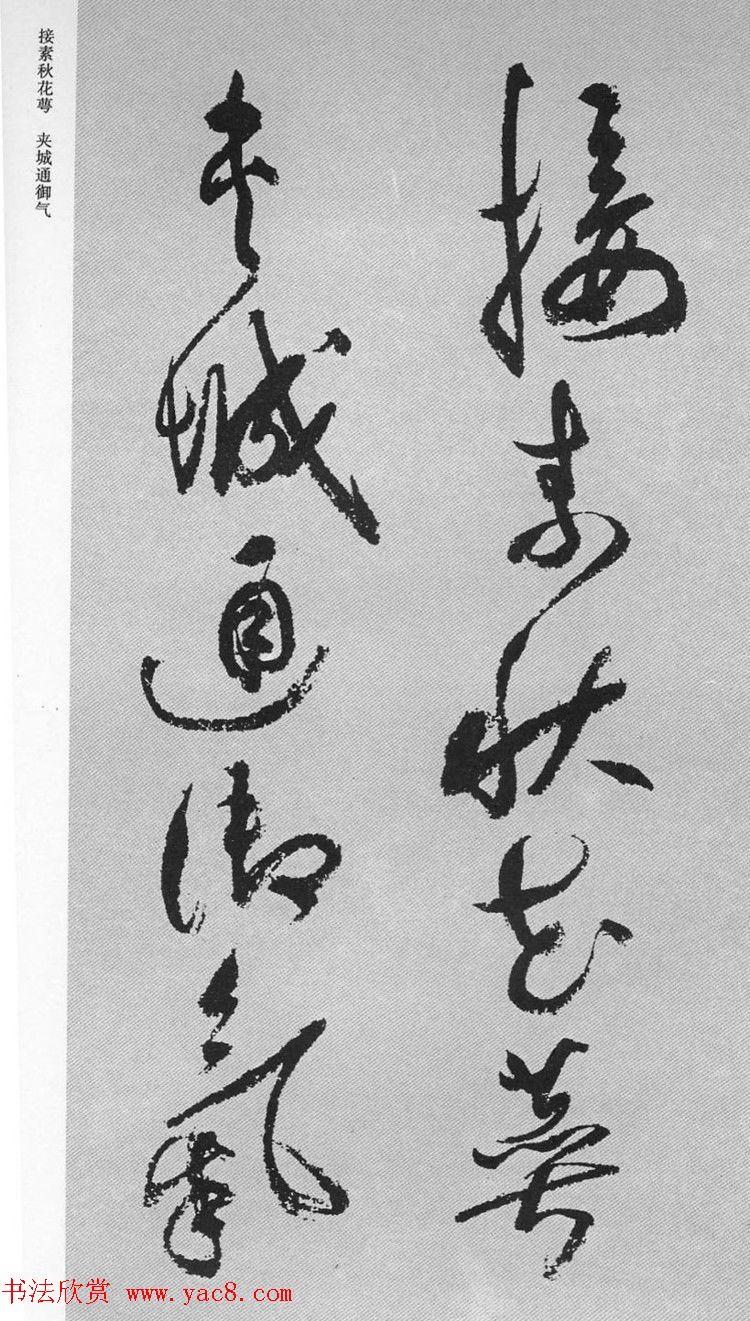 接素秋花萼
夹城通御氣
接素秋花萼 夹城通御气
书法欣赏 www.yac8.com